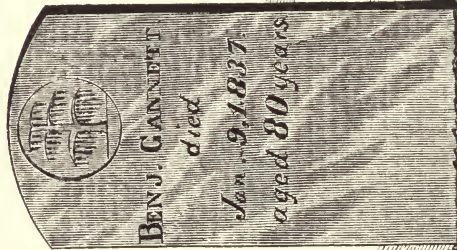 BENJ. GANNETT
died
Jan. 9. 1837.
aged 80 years.